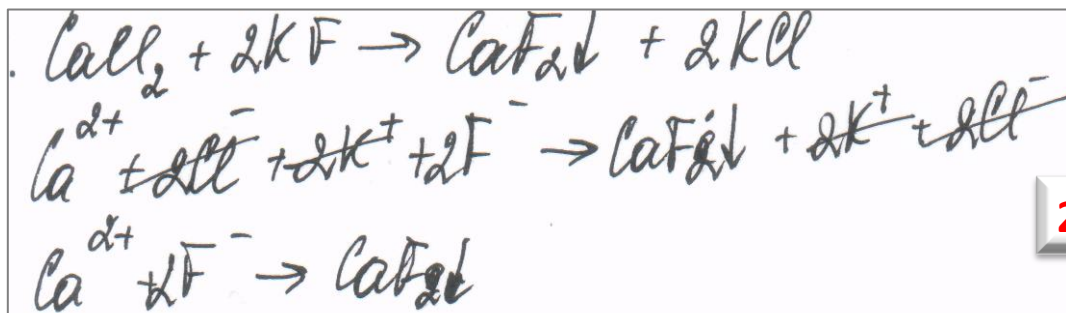 CaCl₂ + 2KF → CaF₂↓ + 2KCl
Ca²⁺ + 2Cl⁻ + 2K⁺ + 2F⁻ → CaF₂↓ + 2K⁺ + 2Cl⁻
Ca²⁺ + 2F⁻ → CaF₂↓
2